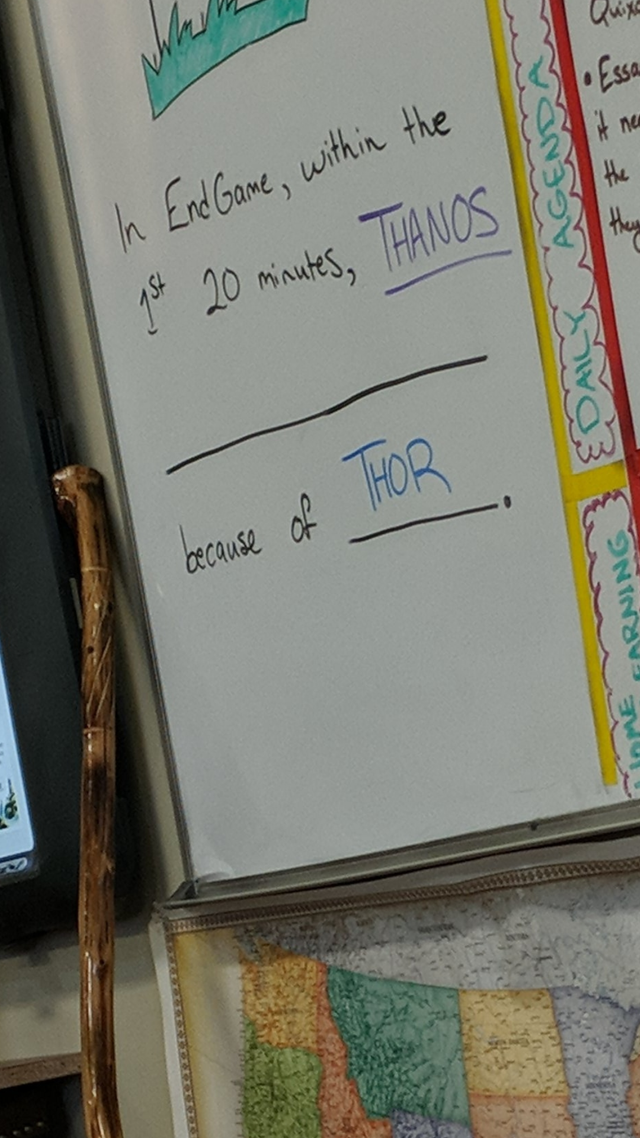 In EndGame, within the
1st 20 minutes, THANOS
because of THOR.
DAILY AGENDA
• Essa
it ne
the
they